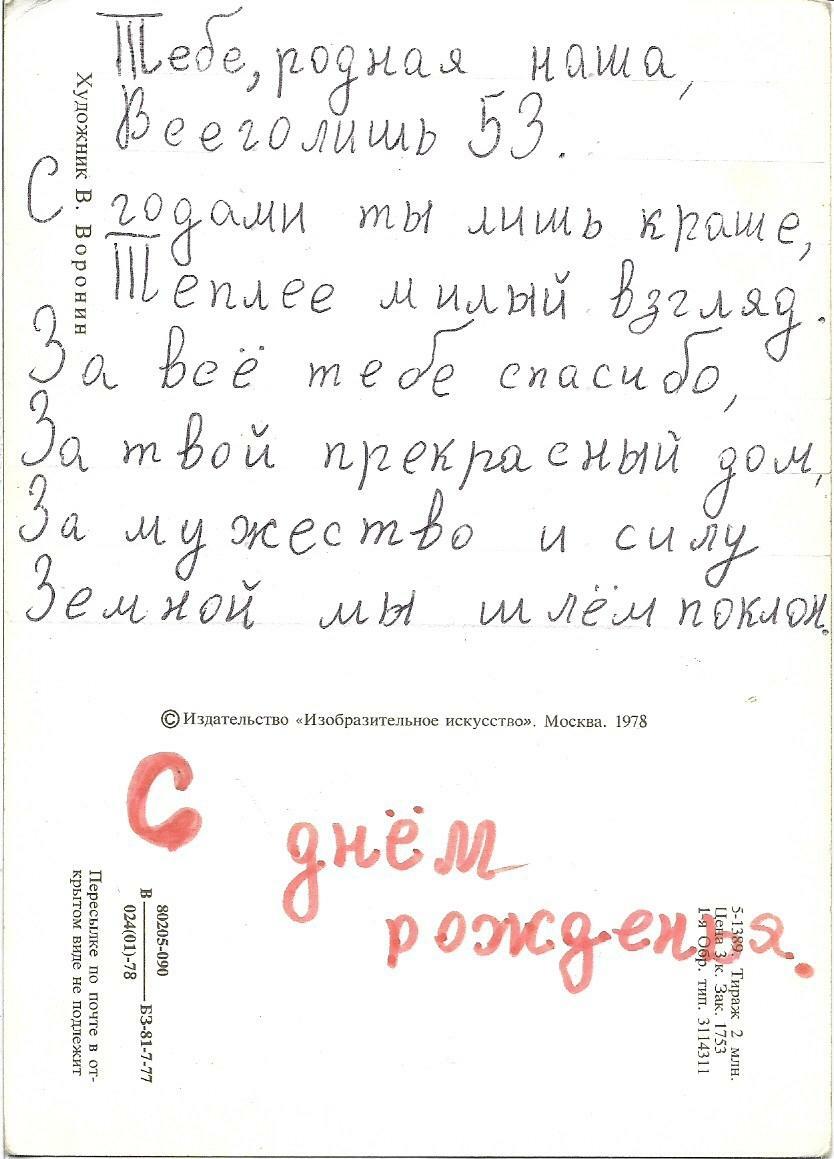 Тебе, родная наша,
Всего лишь 53.
С годами ты лишь краше,
Теплее милый взгляд.
За всё тебе спасибо,
За твой прекрасный дом,
За мужество и силу
Земной мы шлём поклон.
Художник В. Воронин
© Издательство «Изобразительное искусство». Москва. 1978
С днём
рождения.
Пересылке по почте в от-
крытом виде не подлежит
80205-090
В ——— БЗ-81-7-77
024(01)-78
5-1389. Тираж 2 млн.
Цена 3 к. Зак. 1753
1-я Обр. тип. 3114311